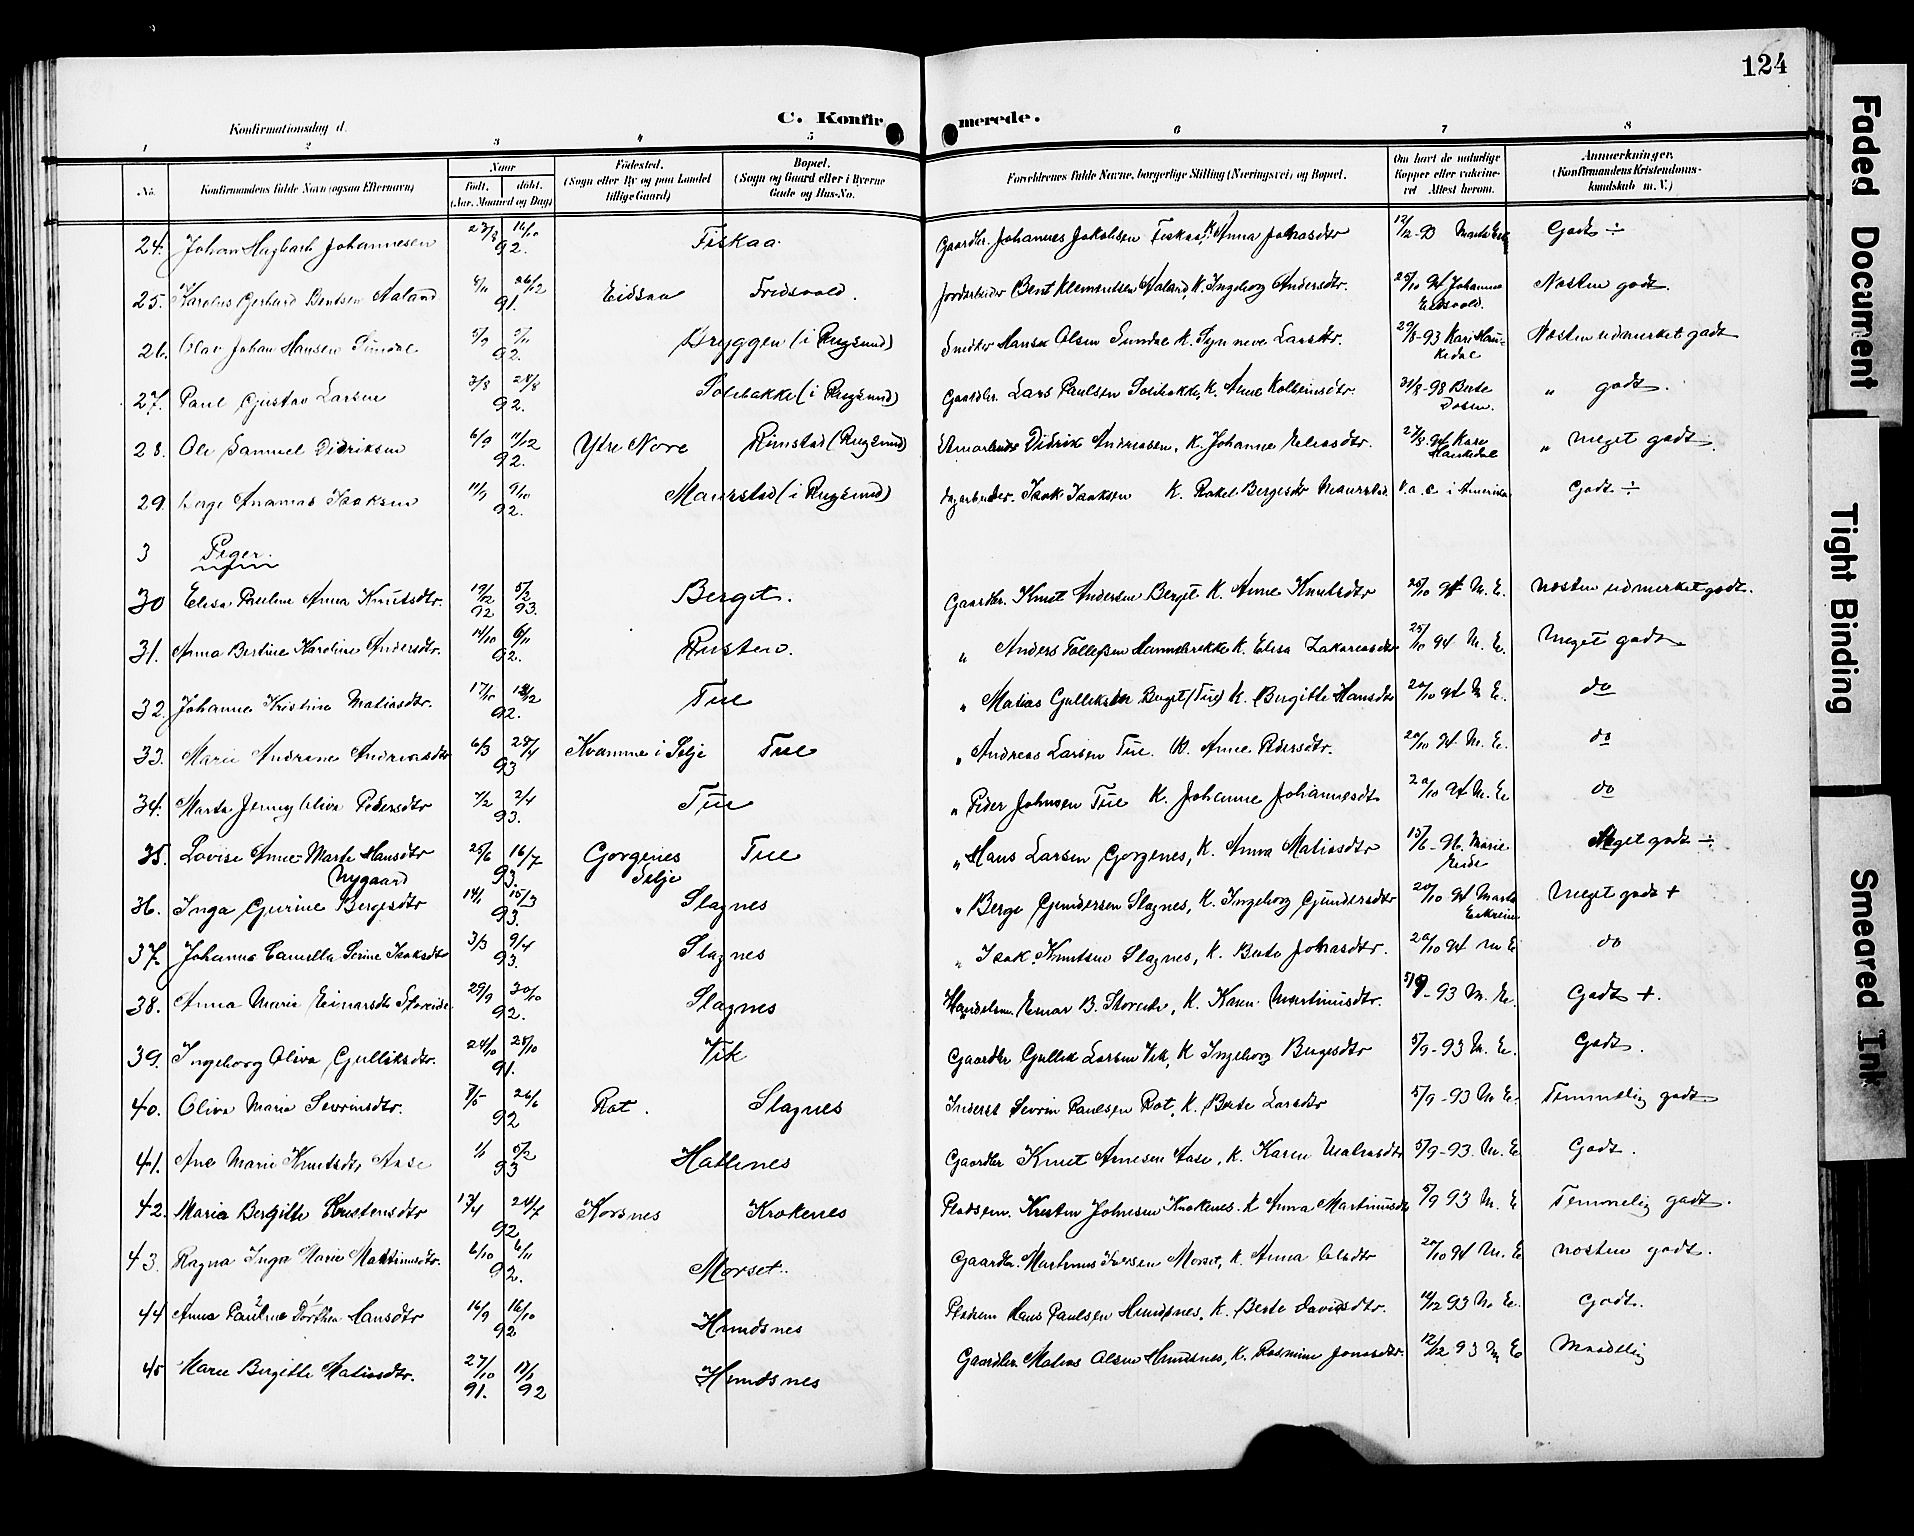 124
C. Konfirmerede.
Konfirmationsdag d.
1 2 3 4 5 6 7 8
No. Konfirmandens fulde Navn (ogsaa Efternavn) Naar Født, døbt. (Aar, Maaned og Dag) Fødested. (Sogn eller By og paa Landet tillige Gaard) Bopæl. (Sogn og Gaard eller i Byerne Gade og Hus-No. Forældrenes fulde Navne, borgerlige Stilling (Næringsvei) og Bopæl. Om havt de naturlige Kopper eller vaccineret Attest herom. Anmerkninger. (Konfirmandens Kristendomskundskab m. V.)
24. Johan Johannesen 92. Fiskaa Gaardbr. Johannes Jakobsen Fiskaa, K. Anna Jonasdtr 12/12-93 Godt ÷
25. Karolus Gerhard Bentsen Aaland 91. Eidsaa Bent Klemmetsen Aaland, K. Ingeborg Andersdtr. 25/10 94 Johanne Næsten godt.
26. Olav Johan Hansen Sundal 92. Bryggen (i Rugsund) Hans Olsen Sundal K. Larsdtr. 93 Kari Næsten udmerket godt
27. Paul Gustav Larsen 3/8 28/8 92. Solibakke (i Rugsund) Gaardbr. Lars Paulsen Solibakke, K. Anne Kolbeinsdtr. 31/8-98 Berte „ godt.
28. Ole Samuel Didriksen 6/9 11/12 92. Ytre Nore Rimstad (Rugsund) Didrik Andreasen, K. Johanne Eliasdtr. 94 Kari „ meget godt
29. Ananias Isaksen 11/9 9/10 92. Maurstad (i Rugsund) Dagarbeider. Isak Isaksen K. Rakel Bergesdtr Maurstad. i Amerika Godt ÷
3 Piger.
30 Elisa Pauline Anna Knutsdtr. 19/12 92 5/2 93. Berget. Gaardbr. Knut Andersen Berget K. Anne Knutsdtr 25/10 94 M. E. Næsten udmerket godt.
31. Anna Bertine Karoline Andersdtr. 14/10 6/11 92. Rusten. „ Anders Tollefsen K. Elisa Zakariasdtr 25/10 94 M. E. Meget godt
32. Johanne Kristine Matiasdtr. 17/10 18/12 92. Tue „ Matias Gulliksen Berget (Tue) K. Bergitte Hansdtr 20/10 94 M E. do
33. Marie Andrine Andreasdtr 6/3 93 Kvamme i Selje Tue „ Andreas Larsen Tue. K. Anne Pedersdtr. 20/10 94 M. E. do
34. Marta Jenny Oliva Pedersdtr 2/4 93. Tue „ Peder Johnsen Tue K. Johanne Johannesdtr 20/10 94 M. E. do
35. Lovise Anne Marte Hansdtr Nygaard 25/6 16/7 93. Gorgenes Selje Tue „ Hans Larsen Gorgenes, K. Anna Matiasdtr 96 Marie Eide Meget godt ÷
36. Inga Gurine Bergesdtr 14/1 15/3 93. Slagnes „ Berge Gundersen Slagnes, K. Ingeborg Gundersdtr 20/10 94 Marta Meget godt +
37. Johanne Camella Serine Isaksdtr 3/3 9/4 93. Slagnes „ Isak Knutsen Slagnes, K. Berte Jonasdtr. 20/10 94 M E do
38. Anna Marie Einarsdtr Storeide 29/9 30/10 92. Slagnes Handelsm. Einar B. Storeide, K. Karen Martinusdtr. 5/9-93 M. E. Godt +.
39. Ingeborg Oliva Gulliksdtr. 24/10 25/10 91. Vik Gaardbr Gullik Larsen Vik, K Ingeborg Bergesdtr 5/9-93 M. E. Godt.
40. Oliva Marie Severinsdtr. 26/6 92 Rot. Slagnes Inderst Sevrin Paulsen Rot, K. Berte Larsdtr 5/9-93 M E. Temmelig godt
41. Ane Marie Knutsdtr Aase 1/1 5/2 93 Hallenes Gaardbr Knut Arnesen Aase, K. Karen 5/9-93. M. E Godt.
42. Maria Bergitte Kristensdtr 13/4 24/7 92 Korsnes Krokenes Pladsem. Kristen Johnsen Krokenes. K Anna Martinusdtr 5/9 93 M. E Temmelig godt.
43. Ragna Inga Marie Martinusdtr. 6/10 6/11 92. Morset. Gaardbr. Martinus Iversen Morset, K. Anna Olsdtr 20/10 94 M. E næsten godt.
44 Anna Pauline Dorthea Hansdtr 16/9 16/10 92 Hundsnes Pladsem Hans Paulsen Hundsnes, K. Berte Davidsdtr. 93 M. E. Godt.
45 Marie Bergitte Matiasdtr. 27/10 91. 92 Hundsnes Gaardbr. Matias Olsen Hundsnes, K. Rasmine Jonasdtr. 12/12 93 M E Maadelig
Faded Document
Tight Binding
Smeared Ink